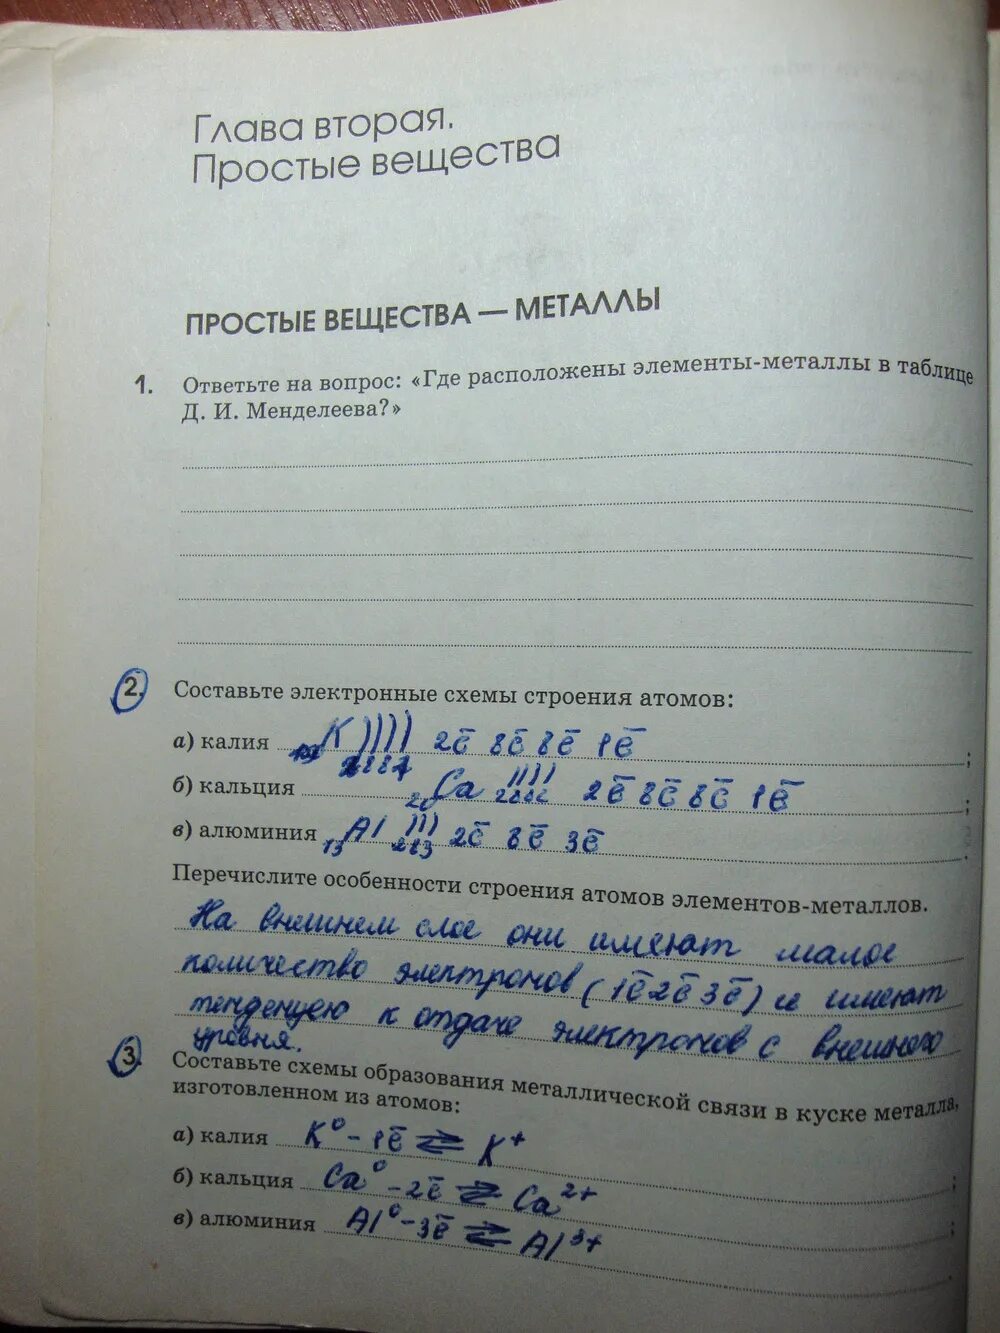 Глава вторая.
Простые вещества
ПРОСТЫЕ ВЕЩЕСТВА — МЕТАЛЛЫ
1. Ответьте на вопрос: «Где расположены элементы-металлы в таблице
Д. И. Менделеева?»
2. Составьте электронные схемы строения атомов:
а) калия K )))) 2ē 8ē 8ē 1ē ;
2881
б) кальция 20 Ca )))) 2ē 8ē 8ē 1ē ;
2882
в) алюминия 13 Al ))) 2ē 8ē 3ē .
283
Перечислите особенности строения атомов элементов-металлов.
На внешнем слое они имеют малое
количество электронов (1ē 2ē 3ē) и имеют
тенденцею к отдаче электронов с внешнего
уровня.
3. Составьте схемы образования металлической связи в куске металла,
изготовленном из атомов:
а) калия K⁰ - 1ē ⇄ K⁺ ;
б) кальция Ca⁰ - 2ē ⇄ Ca²⁺ ;
в) алюминия Al⁰ - 3ē ⇄ Al³⁺ .